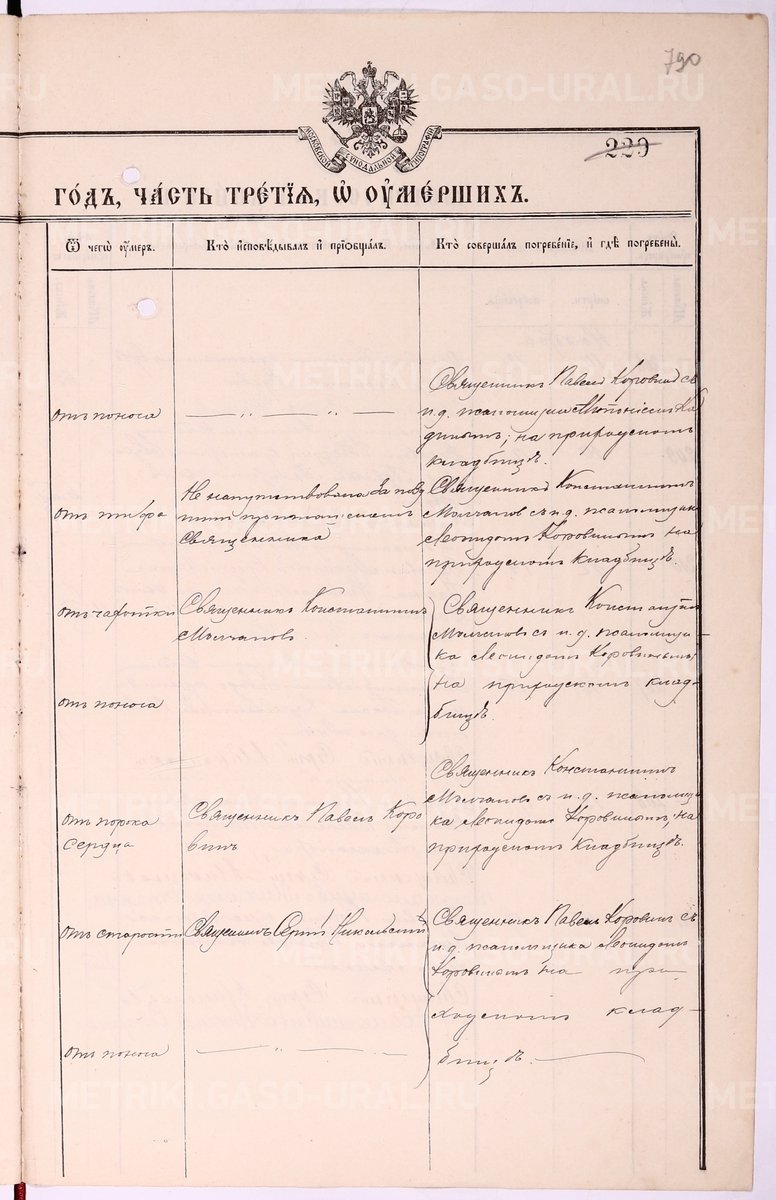 790
МОСКОВСКОЙ СѴНОДАЛЬНОЙ ТИПОГРАФІИ
229
ГО́ДЪ, ЧА́СТЬ ТРЕ́ТІЯ, Ѡ ОУ҆МЕ́РШИХЪ.
Ѿ чегѡ̀ оу҆́меръ.
Кто̀ и҆сповѣ́дывалъ и҆ прїѡбща́лъ.
Кто̀ соверша́лъ погребе́нїе, и҆ гдѣ̀ погребены̀.
отъ поноса
— „ — „ —
Священникъ Павелъ Коровинъ съ
и.д. псаломщика
на приходскомъ
кладбищѣ.
отъ тифа
Не напутствована за
священника
Священникъ Константинъ
Молчановъ съ и.д. псаломщика
Леонидомъ Коровинымъ на
приходскомъ кладбищѣ.
отъ чахотки
Священникъ Константинъ
Молчановъ.
Священникъ Константинъ
Молчановъ съ и.д. псаломщи-
ка Леонидомъ Коровинымъ,
на приходскомъ клад-
бищѣ.
отъ поноса
отъ порока
сердца
Священникъ Павелъ Коро
винъ
Священникъ Константинъ
Молчановъ съ и.д. псаломщи
ка Леонидомъ Коровинымъ, на
приходскомъ кладбищѣ.
отъ старости
Священникъ Сергій Никольскій
Священникъ Павелъ Коровинъ съ
и.д. псаломщика Леонидомъ
Коровинымъ на при-
ходскомъ клад-
бищѣ.
отъ поноса
— „ — —
METRIKI.GASO-URAL.RU